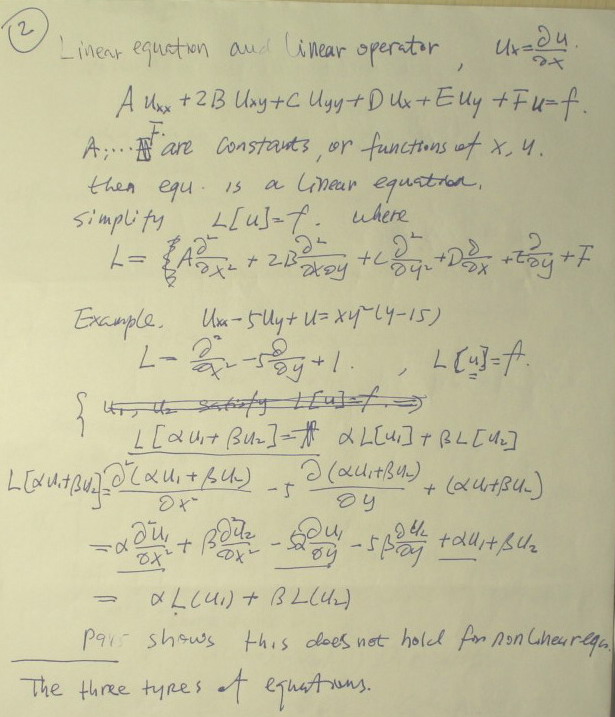 2
Linear equation and linear operator, Ux = ∂u/∂x
A Uxx + 2B Uxy + C Uyy + D Ux + E Uy + F u = f.
A, ... F are constants, or functions of x, y.
then equ. is a linear equation.
simplify L[u] = f. where
L = A ∂²/∂x² + 2B ∂²/∂x∂y + C ∂²/∂y² + D ∂/∂x + E ∂/∂y + F
Example. Uxx - 5Uy + u = xy²(y-15)
L = ∂²/∂x² - 5 ∂/∂y + 1. , L[u] = f.
{ u1, u2 satisfy L[u] = f. ⇒
L[αu1 + βu2] = αL[u1] + βL[u2]
L[αu1+βu2] = ∂²(αu1 + βu2)/∂x² - 5 ∂(αu1+βu2)/∂y + (αu1+βu2)
= α ∂²u1/∂x² + β ∂²u2/∂x² - 5α ∂u1/∂y - 5β ∂u2/∂y + αu1 + βu2
= αL(u1) + βL(u2)
shows this does not hold for nonlinear equ.
The three types of equations.